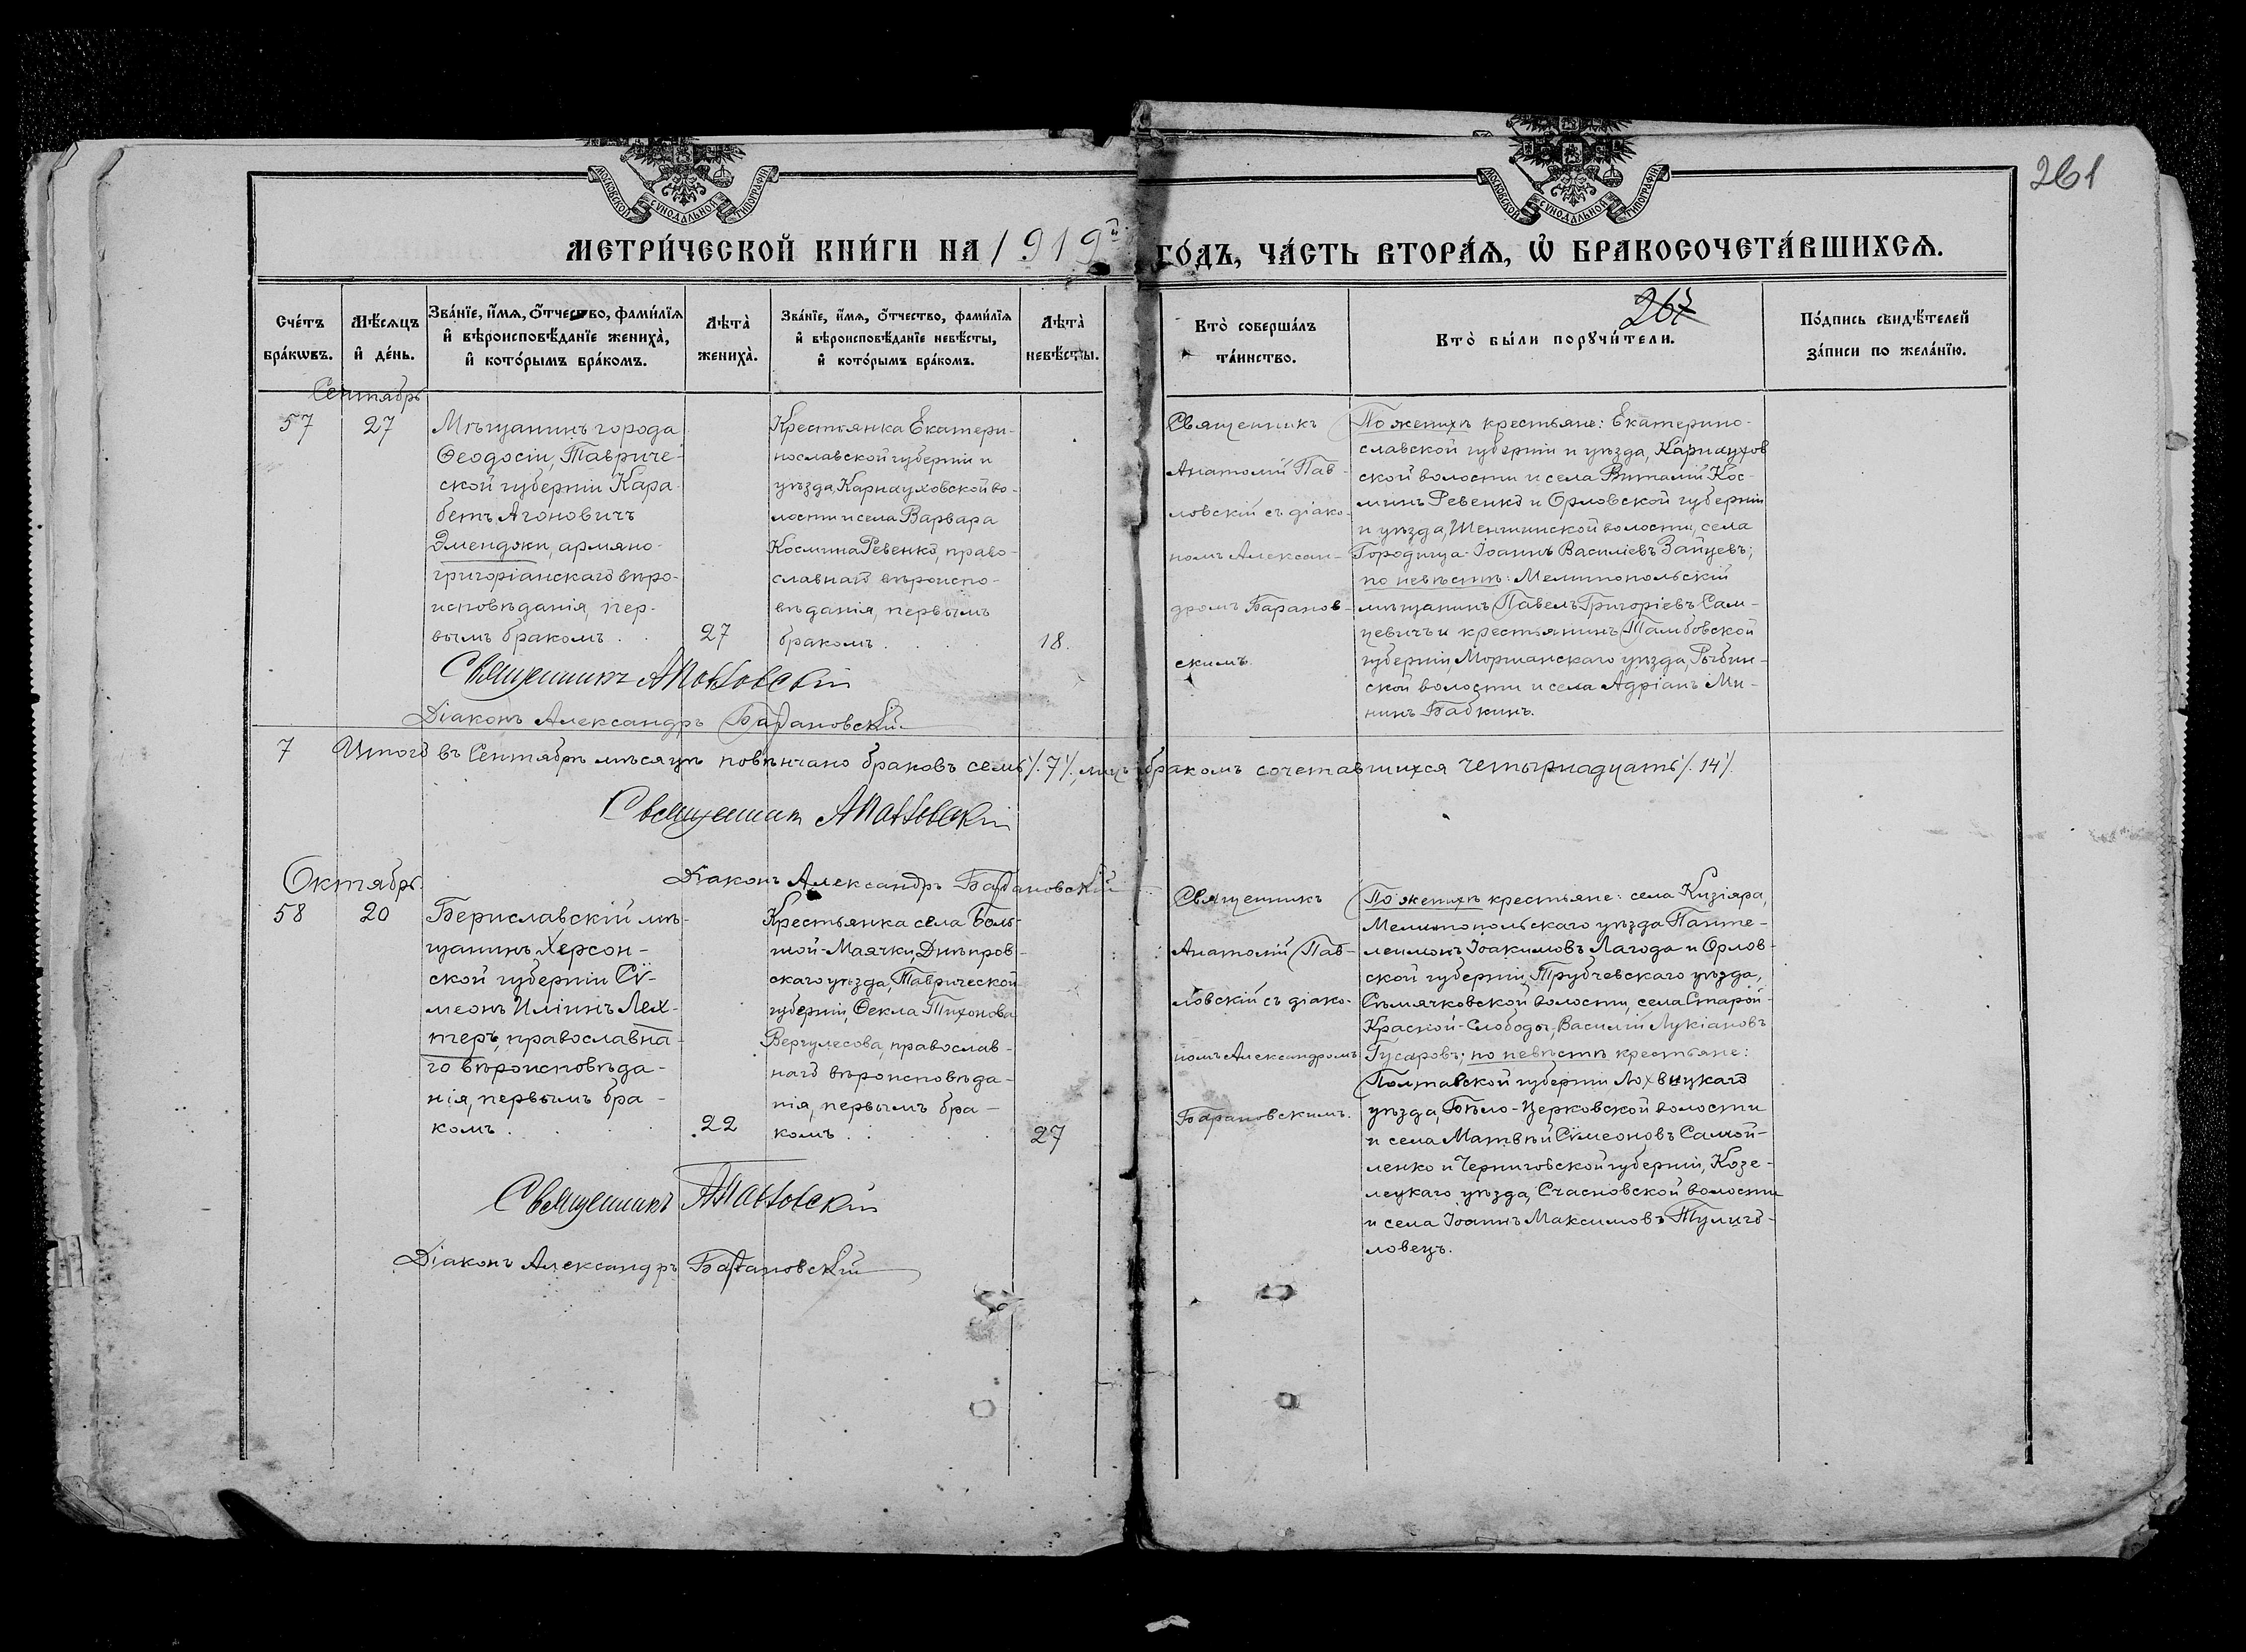 МОСКОВСКОЙ СѴНОДАЛЬНОЙ ТИПОГРАФІИ
МОСКОВСКОЙ СѴНОДАЛЬНОЙ ТИПОГРАФІИ
261
МЕТРИ́ЧЕСКОЙ КНИ́ГИ НА 1919й ГО́ДЪ, ЧА́СТЬ ВТОРА́Ѧ, Ѡ҆ БРАКОСОЧЕТА́ВШИХСѦ.
267
Сче́тъ
бра́кѡвъ.
Мѣ́сѧцъ
и҆ де́нь.
Зва́нїе, и҆́мѧ, ѻ҆́тчество, фами́лїѧ
и҆ вѣроисповѣ́данїе жениха̀,
и҆ кото́рымъ бра́комъ.
Лѣта̀
жениха̀.
Зва́нїе, и҆́мѧ, ѻ҆́тчество, фами́лїѧ
и҆ вѣроисповѣ́данїе невѣ́сты,
и҆ кото́рымъ бра́комъ.
Лѣта̀
невѣ́сты.
Кто̀ соверша́лъ
та́инство.
Кто̀ бы́ли порꙋчи́тели.
По́дпись свидѣ́телей
за́писи по жела́нїю.
Сентябрь
57
27
Мѣщанинъ города
Ѳеодосіи, Тавриче-
ской губерніи Кара-
бетъ Агоновичъ
Эменджи, армяно-
григоріанскаго вѣро-
исповѣданія, пер-
вымъ бракомъ . .
27
Крестьянка Екатери-
нославской губерніи и
уѣзда, Карнауховской во-
лости и села Варвара
Космина Ревенко, право-
славнаго вѣроиспо-
вѣданія, первымъ
бракомъ . . . .
18.
Священникъ
Анатолій Пав-
ловскій съ діако-
номъ Алексан-
дромъ Баранов-
скимъ.
По женихѣ крестьяне: Екатерино-
славской губерніи и уѣзда, Карнаухов
ской волости и села Виталій Кос-
минъ Ревенко и Орловской губерніи
и уѣзда, села
Городища Іоаннъ Василіевъ Зайцевъ;
по невѣстѣ: Мелитопольскій
мѣщанинъ Павелъ Григоріевъ Сам-
цевичъ и крестьянинъ Тамбовской
губерніи, Моршанскаго уѣзда, Рыбин-
ской волости и села Адріанъ Ми-
нинъ Бабкинъ.
Священникъ АПавловскій
Діаконъ Александръ Барановскій
7 Итого въ Сентябрѣ мѣсяцѣ повѣнчано браковъ семь /.7/., лицъ бракомъ сочетавшихся четырнадцать /.14/.
Священникъ АПавловскій
Діаконъ Александръ Барановскій
Октябрь.
58
20
Бериславскій мѣ-
щанинъ Херсон-
ской губерніи Сѵ-
меонъ Иліинъ Лех-
теръ, православна-
го вѣроисповѣда-
нія, первымъ бра-
комъ . . . .
22
Крестьянка села Боль-
шой-Маячки, Днѣпров-
скаго уѣзда, Таврической
губерніи, Ѳекла Тихонова
Вергулесова, православ-
наго вѣроисповѣда-
нія, первымъ бра-
комъ . . . .
27
Священникъ
Анатолій Пав-
ловскій съ діако-
номъ Александромъ
Барановскимъ.
По женихѣ крестьяне: села Кизіяра,
Мелитопольскаго уѣзда Панте-
леимонъ Іоакимовъ Лагода и Орлов-
ской губерніи, Трубчевскаго уѣзда,
Сѣмячковской волости, села Старой-
Красной-Слободы, Василій Лукіановъ
Гусаровъ; по невѣстѣ крестьяне:
Полтавской губерніи Лохвицкаго
уѣзда, Бѣло-Церковской волости
и села Матвѣй Сѵмеоновъ Самой-
ленко и Черниговской губерніи, Козе-
лецкаго уѣзда, Счасновской волости
и села Іоаннъ Максимовъ Тулиго-
ловецъ.
Священникъ АПавловскій
Діаконъ Александръ Барановскій